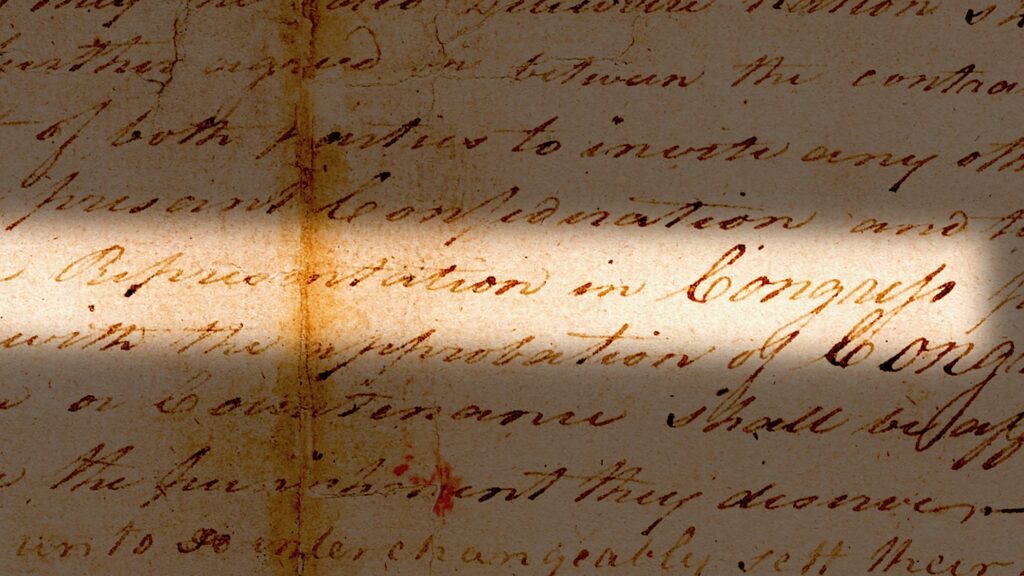 Delaware nation
further agreed on between the contra
of both parties to invite any oth
present Confederation and
Representation in Congress
with the approbation of Cong
or Countenance shall be aff
the punishment they deserve
interchangeably sett their